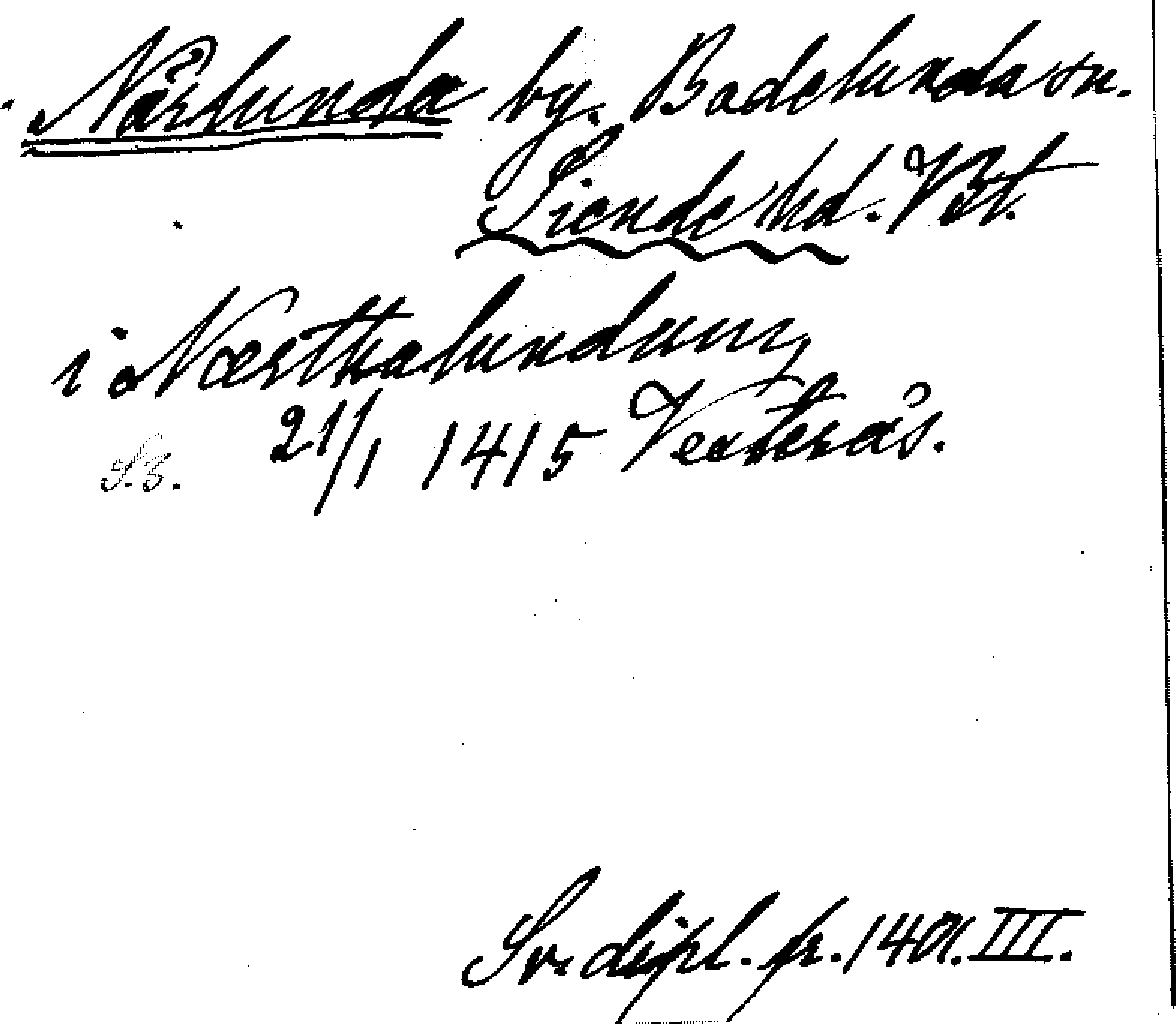 Närlunda by. Badelunda sn.
Siende hd. Vstm.
i Næsthalundum
21/1 1415 Vesterås.
S.S.
Sv. dipl. fr. 1401. III.